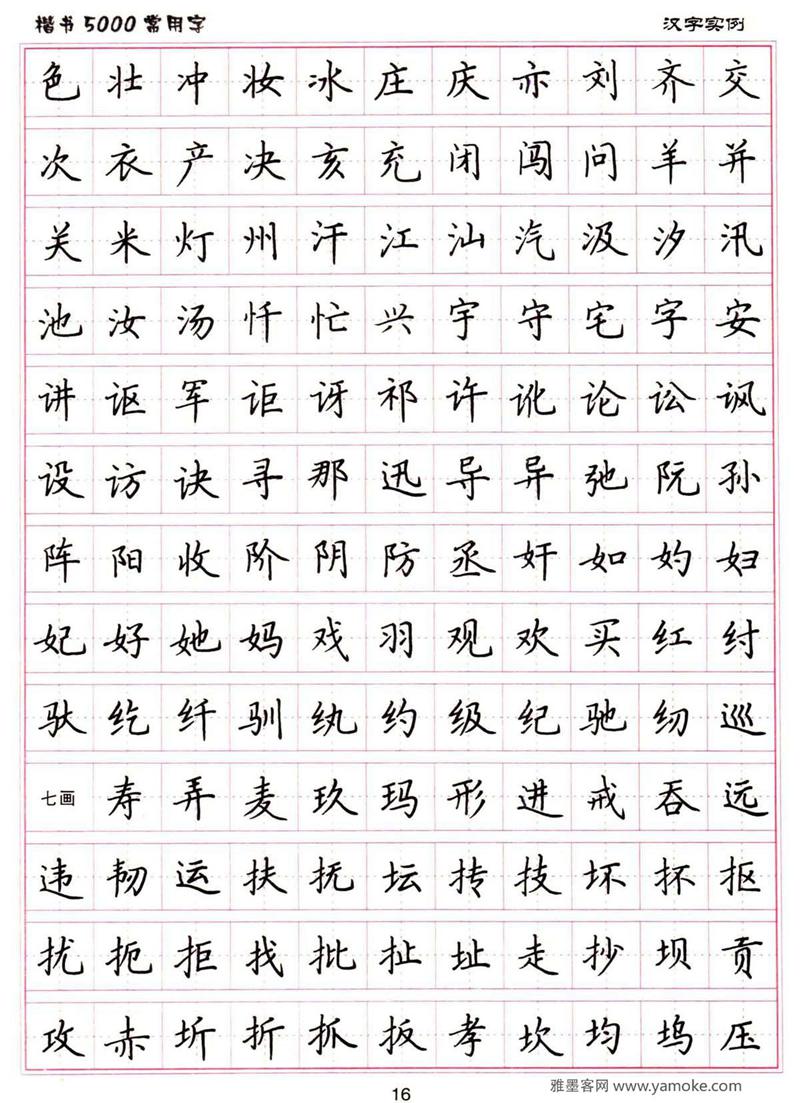 楷书5000常用字 汉字实例
色壮冲妆冰庄庆亦刘齐交
次衣产决亥充闭闯问羊并
关米灯州汗江汕汽汲汐汛
池汝汤忏忙兴宇守宅字安
讲讴军讵讶祁许讹论讼讽
设访诀寻那迅导异弛阮孙
阵阳收阶阴防丞奸如妁妇
妃好她妈戏羽观欢买红纣
驮纥纤驯纨约级纪驰纫巡
七画寿弄麦玖玛形进戒吞远
违韧运扶抚坛抟技坏抔抠
扰扼拒找批扯址走抄坝贡
攻赤圻折抓扳孝坎均坞压
16
雅墨客网 www.yamoke.com